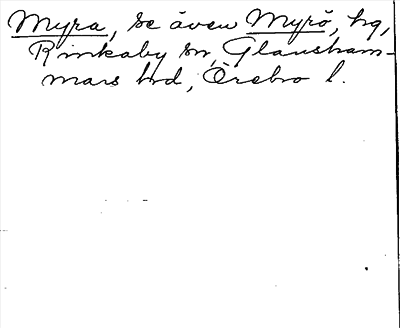 Myra, se även Myrö, hg,
Rinkaby sn, Glansham-
mars hrd, Örebro l.